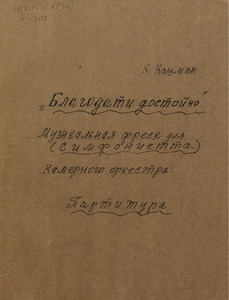 К. Кацман
„Благодати достойно"
Музыкальная фреск для
(Симфониетта)
Камерного оркестра
Партитура